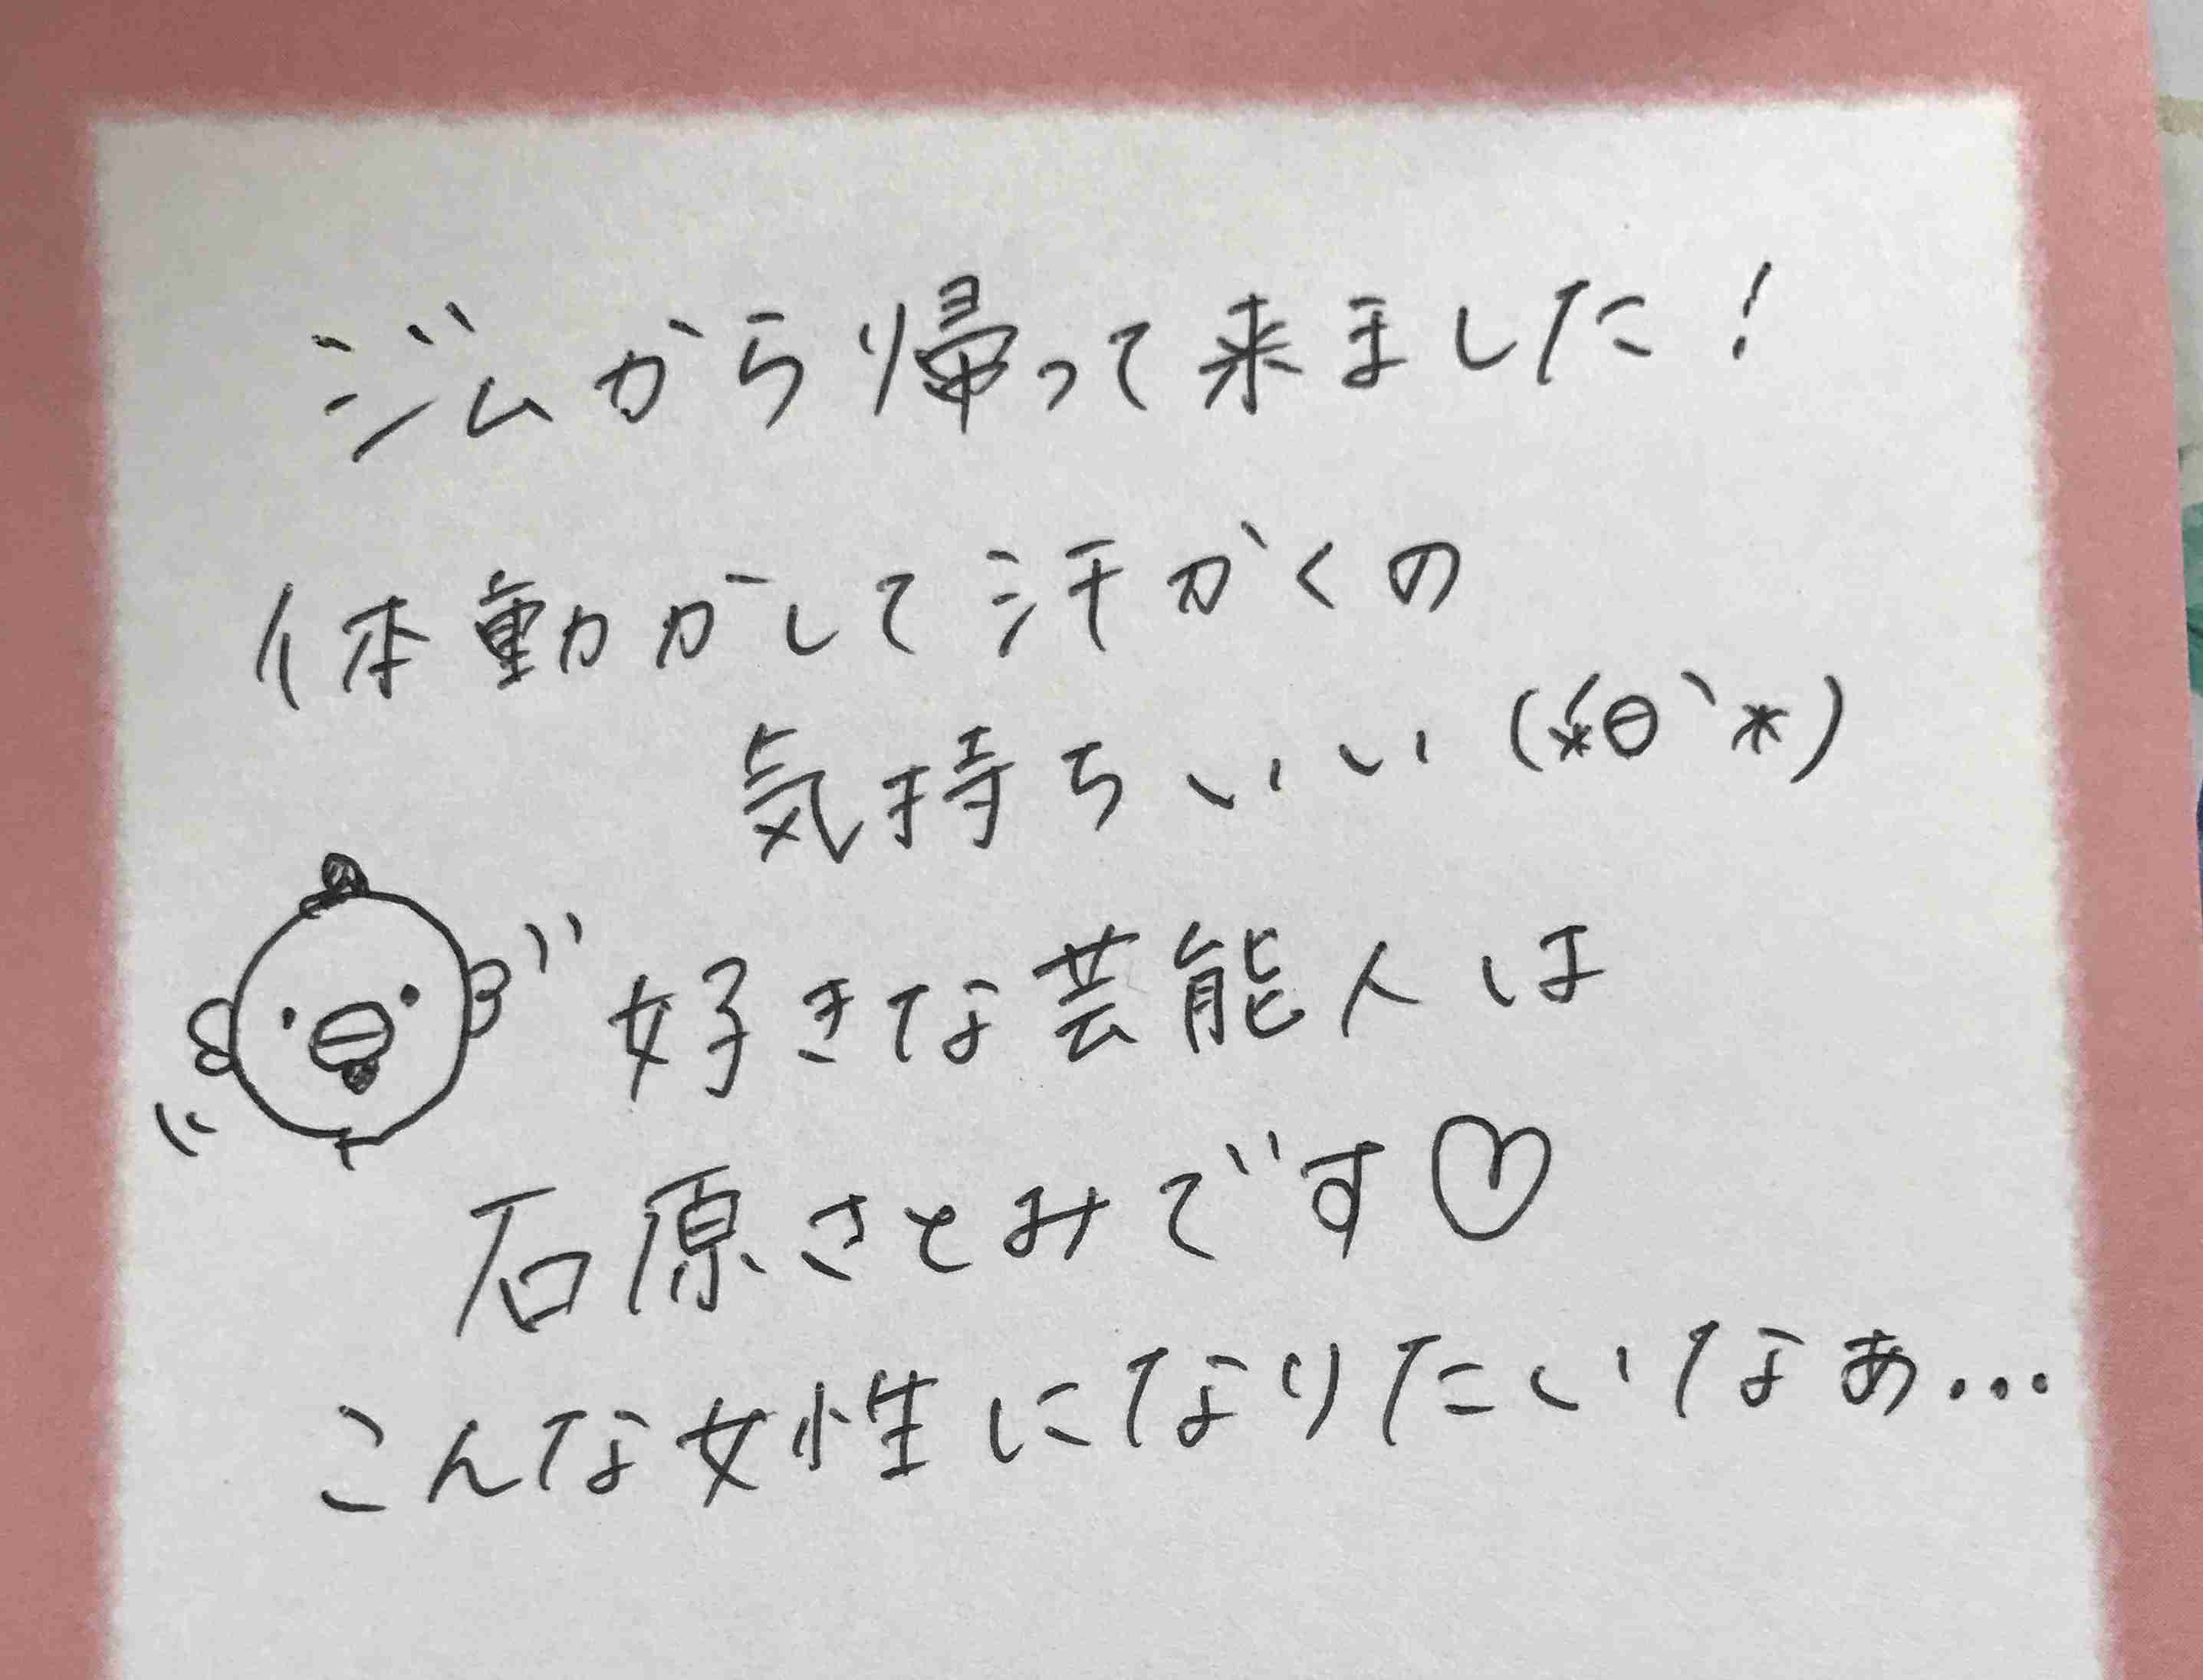 ジムから帰って来ました！
体動かして汗かくの
気持ちいい(*´θ｀*)
好きな芸能人は
石原さとみです♡
こんな女性になりたいなぁ…